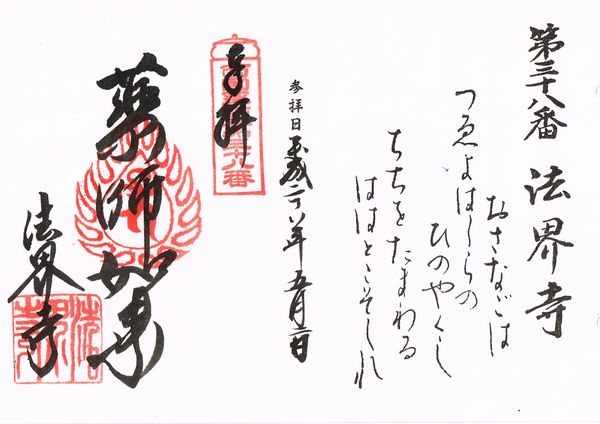 第三十八番 法界寺
おさなごは
つゑよはしらの
ひのやくし
ちちをたまわる
ははとこそしれ
参拝日 平成二十八年 五月二日
奉拝
薬師如来
法界寺
法界寺